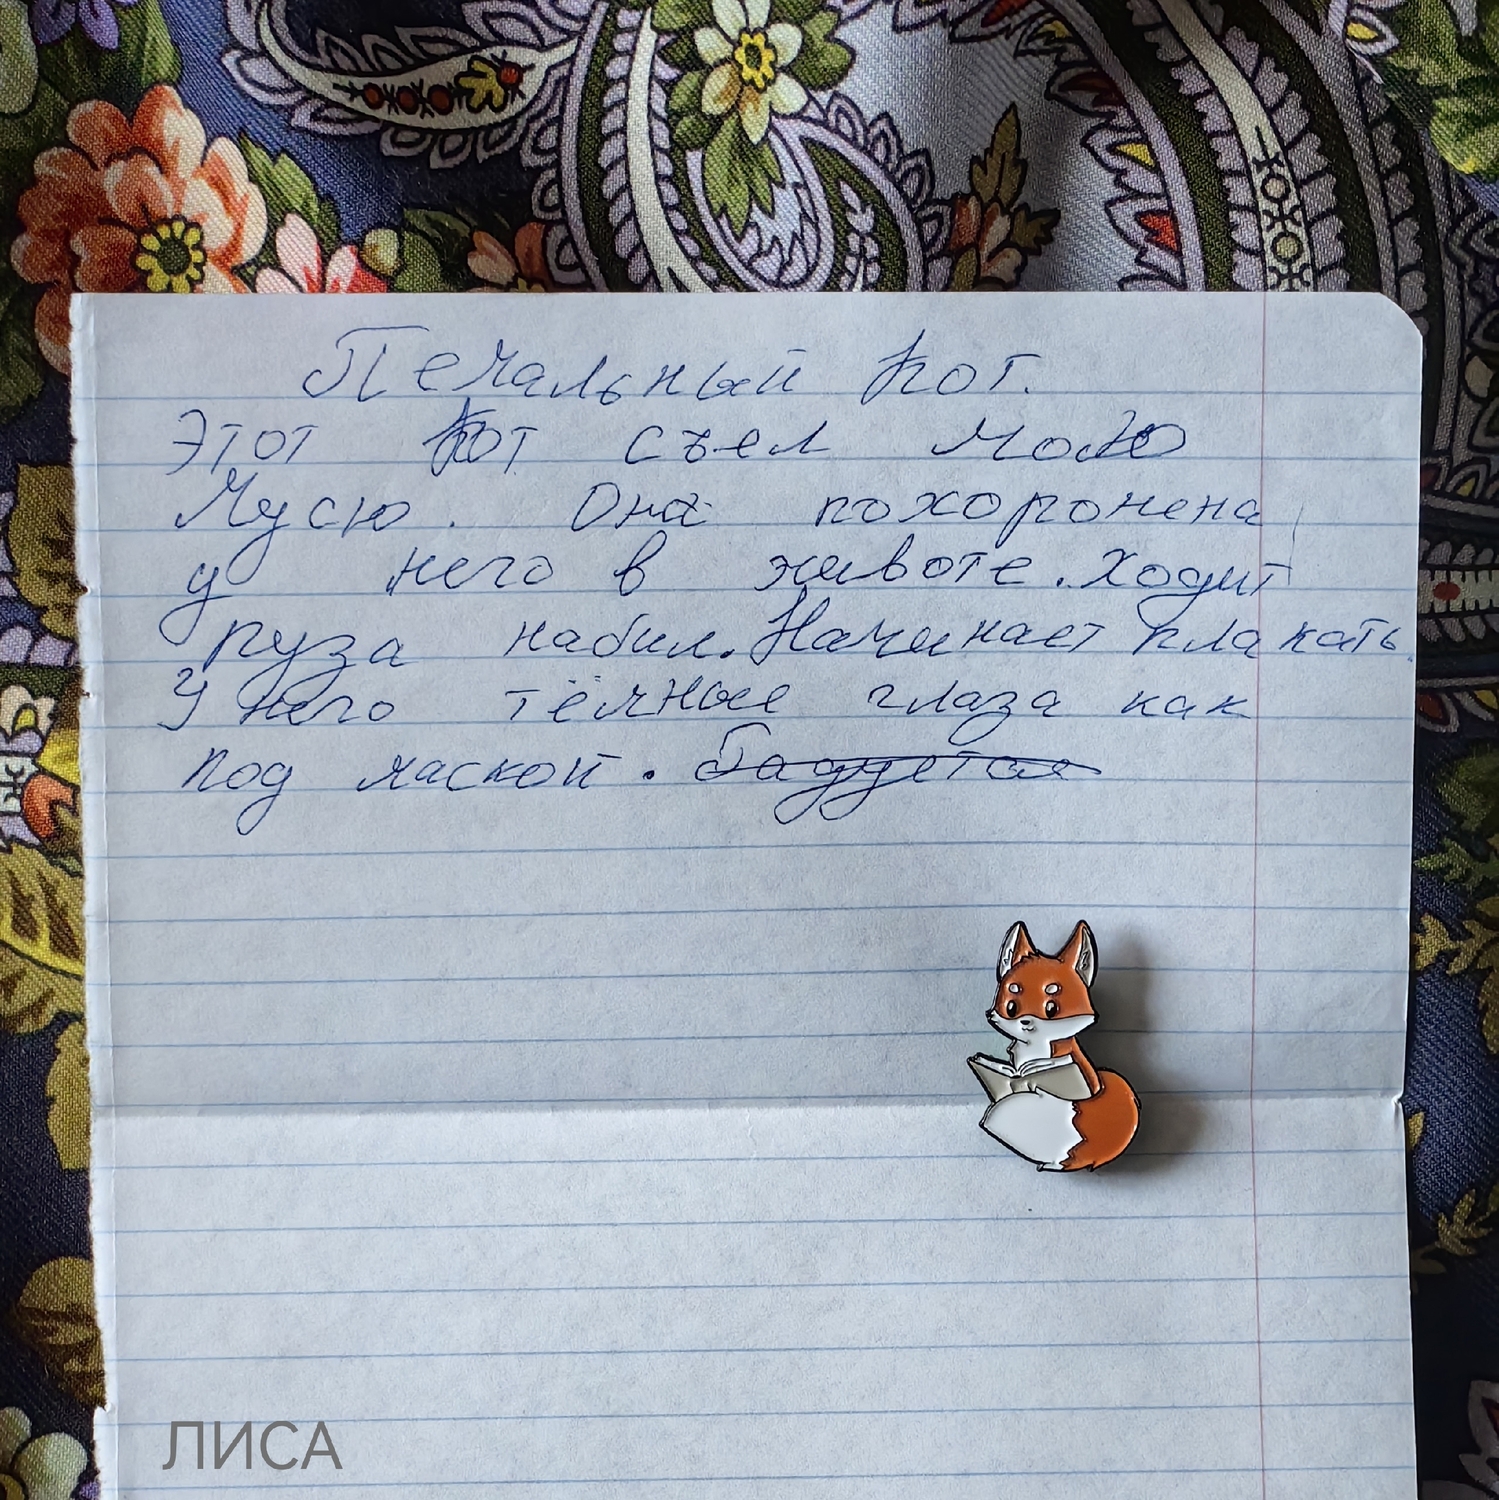 Печальный кот.
Этот кот съел мою
Мусю. Она похоронена
у него в животе. Ходит
пуза набил. Начинает плакать.
У него тёмные глаза как
под маской. Радуется
ЛИСА